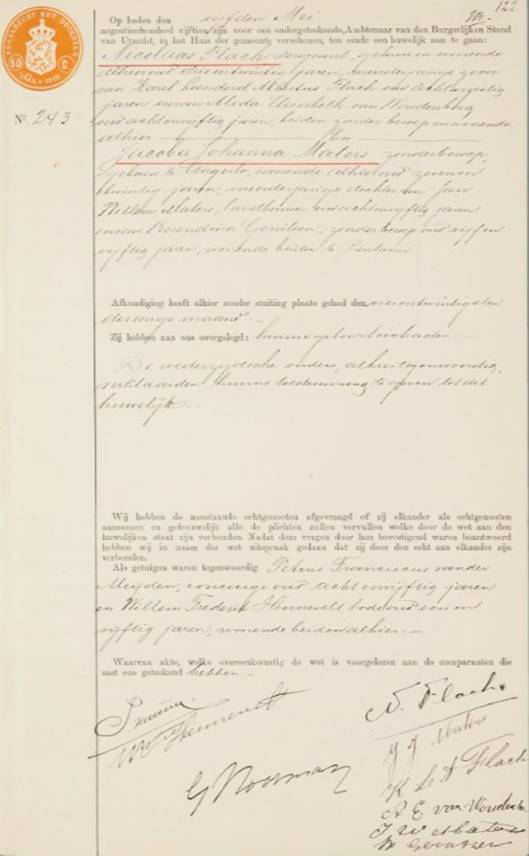 122
Op heden den vijfden Mei
negentienhonderd vijftien zijn voor ons ondergeteekende, Ambtenaar van den Burgerlijken Stand
van Utrecht, in het Huis der gemeente verschenen, ten einde een huwelijk aan te gaan:
Nicolaas Flach, sergeant, geboren en wonende
alhier oud drieentwintig jaren, meerderjarige zoon
van Karel Leendered Martus Flach oud achtenvijftig
jaren en van Alida Elisabeth van Woudenberg
oud achtenvijftig jaren, beiden zonder beroep en wonende
alhier En
Nº 243
Jacoba Johanna Maters zonder beroep,
geboren te Angerlo, wonende alhier oud zeven en
twintig jaren, meerderjarige dochter van Jan
Willem Maters, landbouwer oud achtenvijftig jaren
en van Berendina Gerritsen, zonder beroep oud vijf en
vijftig jaren, wonende beiden te
Afkondiging heeft alhier zonder stuiting plaats gehad den vierentwintigsten
der vorige maand
Zij hebben aan ons overgelegd: hunne geboorteakten
De wederzijdsche ouders, alhier tegenwoordig,
verklaarden hunne toestemming te geven tot dit
huwelijk.
Wij hebben de aanstaande echtgenooten afgevraagd of zij elkander als echtgenooten
aannemen en getrouwelijk alle de plichten zullen vervullen welke door de wet aan den
huwelijken staat zijn verbonden. Nadat deze vragen door hen bevestigend waren beantwoord
hebben wij in naam der wet uitspraak gedaan dat zij door den echt aan elkander zijn
verbonden.
Als getuigen waren tegenwoordig Petrus Franciscus van der
Meyden, concierge oud acht en vijftig jaren
en Willem Frederik Hennevelt bode oud een en
vijftig jaren, wonende beiden alhier.
Waarvan akte, welke overeenkomstig de wet is voorgelezen aan de comparanten die
met ons geteekend hebben
N. Flach
J J Maters
W F Hennevelt
K L M Flach
G Noorman
A E van Woudenberg
J W Maters
B Gerritsen